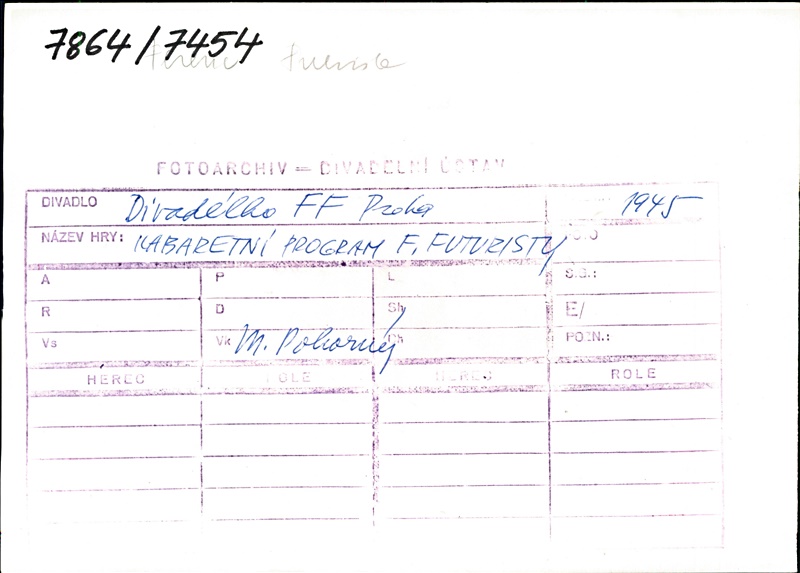 7864/7454
Ferenc Futurista
FOTOARCHIV — DIVADELNÍ ÚSTAV
DIVADLO Divadélko FF Praha 1945
NÁZEV HRY: KABARETNÍ PROGRAM F. FUTURISTY
A P L S.G.:
R D Sh E/
Vs Vk M. Pokorný POZN.:
HEREC ROLE HEREC ROLE